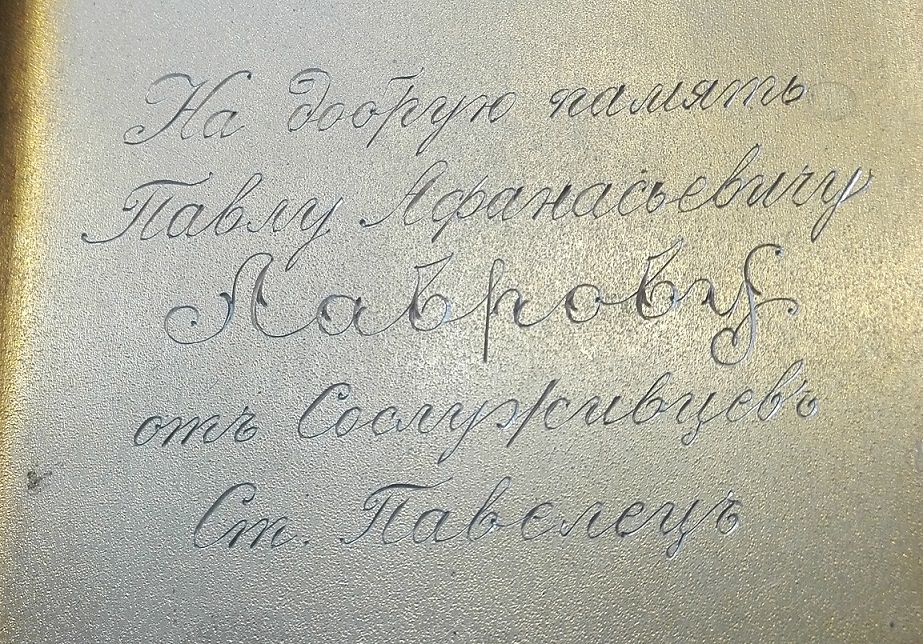 На добрую память
Павлу Афанасьевичу
Лаврову
отъ Сослуживцевъ
Ст. Павелецъ